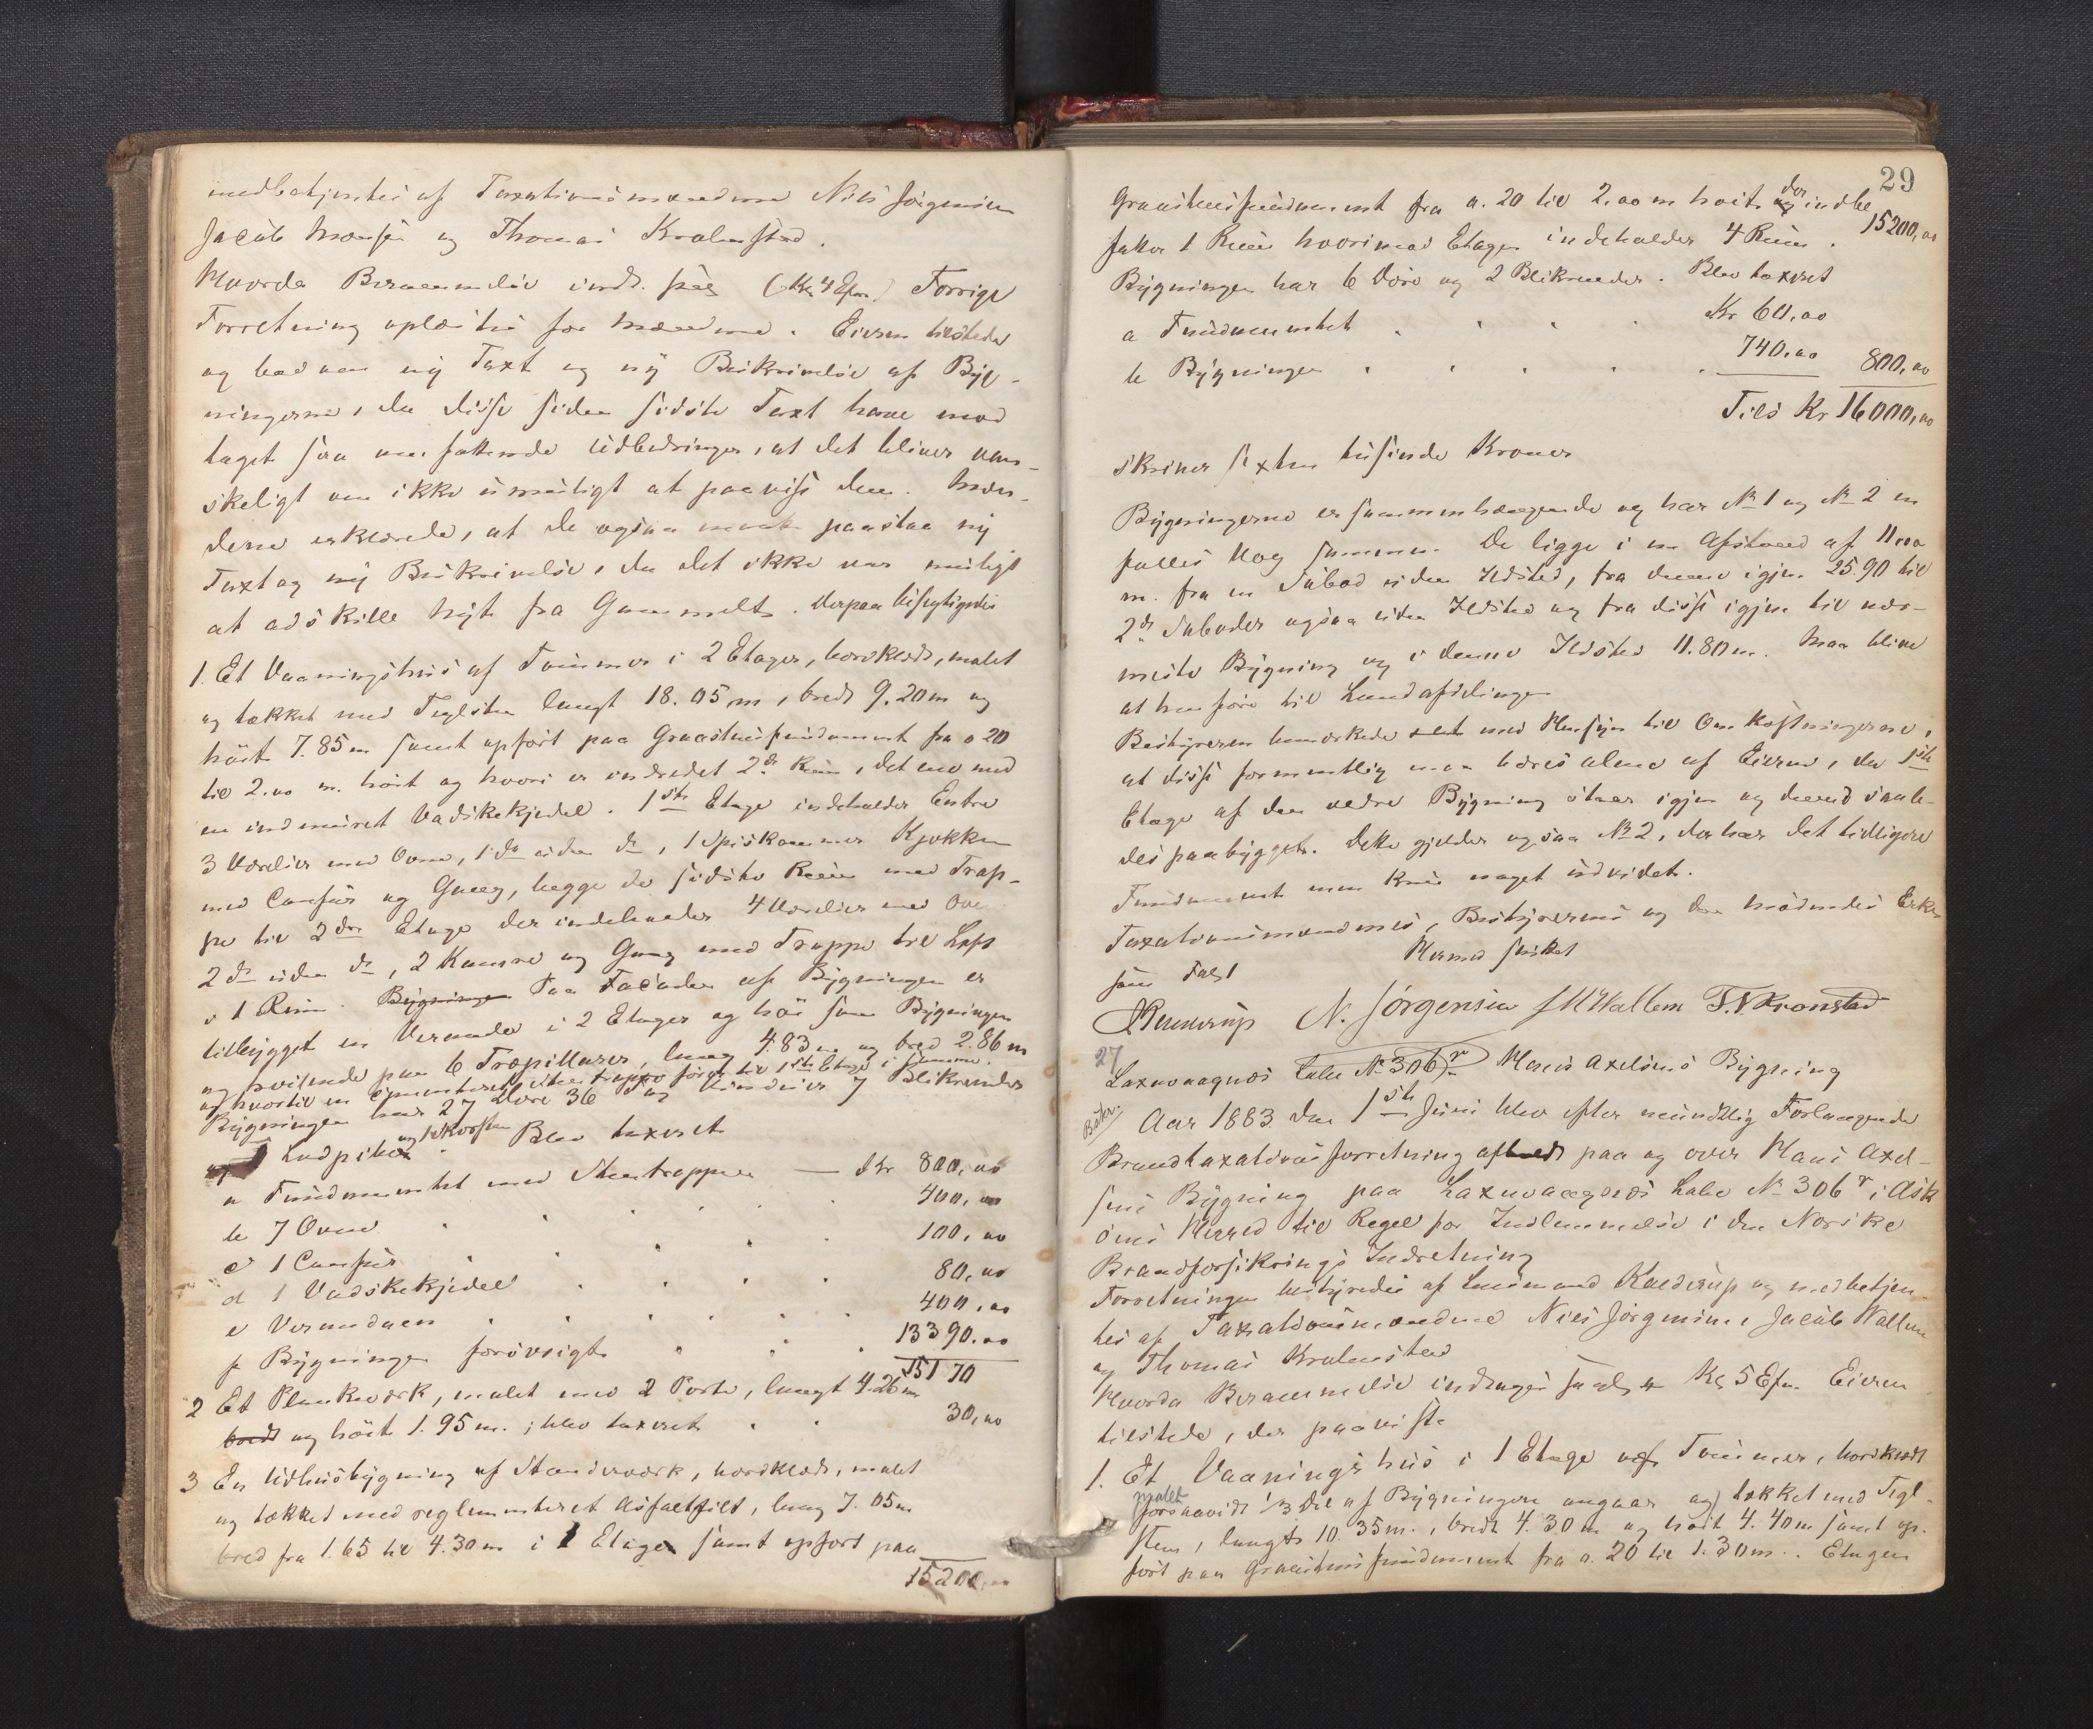 medbetjentes af Taxationsmændene Nils Jörgensen
Jacob Monsen og Thomas Krohnstad.
Hvorda Berammelse indt. sees (Kl 4 Efm.) Forrige
Forretning oplæstes for Mændene. Eieren tilstede
og bad om ny Taxt og ny Beskrivelse af Byg-
ningerne, da disse siden sidste Taxt have mod
taget saa omfattende Udbedringer, at det bliver van-
skeligt om ikke umuligt at paavise dem. Mæn-
dene erklærede, at de ogsaa maatte paastaa ny
Taxt og ny Beskrivelse, da det ikke var muligt
at adskille Nyt fra Gammelt. Derpaa besigtigedes
1. Et Vaaningshus af Tømmer i 2 Etager, bordklædt, malet
og tækket med Teglsten langt 18.05 m, bredt 9.20 m og
høit 7.85 m samt opført paa Graastensfundament fra 0.20
til 2.00 m. høit og hvori er indredet 2de Rum, det ene med
en indmuret Vadskekjedel. 1ste Etage indeholder Entre
3 Værelser med Ovne, 1 do uden do, 1 Spiskammer Kjøkken
med Comfur og Gang, begge de sidste Rum med Trap-
pe til 2den Etage der indeholder 4 Værelser med Ovn
2 do uden do, 2 Kamre og Gang med Trappe til Loft
i 1 Rum. Bygningen Paa Facaden af Bygningen er
tilbygget en Veranda i 2 Etager og høi som Bygningen
og hvilende paa 6 Træpillarer, lang 4.83 m og bred 2.86 m
og hvortil en cementeret Stentrappe fører til 1ste Etage i samme.
Bygningen har 27 Døre 36 Fag Vinduer 7 Blikrender
og 1 Ludpibe og 1 Skorsten. Blev taxeret
a Fundamentet med Stentrappen — Kr 800,00
b 7 Ovne 400,00
c 1 Comfur 100,00
d 1 Vadskekjedel 80,00
e Verandaen 400,00
f Bygningen forøvrigt 13390.00
15170
2 Et Plankeværk, malet med 2 Porte, langt 4.26 m
bredt og høit 1.95 m.; blev taxeret 30,00
3 En Udhusbygning af Standerværk, bordklædt, malet
og tækket med reglementeret Asfaltfilt, lang 7.05 m
bred fra 1.65 til 4.30 m i 1 Etage samt opført paa
15200,00
29
Graastensfundament fra 0.20 til 2.00 m høit der indbe
15200,00
fatter 1 Rum hvorimod Etagen indeholder 4 Rum.
Bygningen har 6 Døre og 2 Blikrender. Blev taxeret
a Fundamentet Kr 60,00
b Bygningen 740,00 800,00
Tils Kr 16000,00
skriver sexten tusinde Kroner
Bygningerne er sammenhængende og har No 1 og No 2 en
fælles Væg sammen. De ligge i en Afstand af 11.00
m. fra en Søbod uden Ildsted, fra denne igjen 25.90 til
2de Søboder ogsaa uden Ildsted og fra disse igjen til nær-
meste Bygning og i denne Ildsted 11.80 m. Maa blive
at henføre til Landafdelingen
Bestyreren bemærkede med Hensyn til Omkostningerne,
at disse formentlig maa bæres alene af Eieren, da 1ste
Etage af den ældre Bygning staar igjen og denne saale-
des paabygget. Dette gjælder ogsaa No 2, der har det tidligere
Fundament men kun noget udvidet.
Taxationsmændenes, Bestyrerens og den mødendes
som Talst
Hermed sluttet
N. Jörgensen J M Wallem T. N Kronstad
27 Laxevaagnæs Labr No 306r Hans Axelsens Bygning
Aar 1883 den 1ste Juni blev efter mundtlig Forlangende
Brandtaxationsforretning afholdt paa og over Hans Axel-
sens Bygning paa Laxevaagnæs Labr No 306r i Ask
øens Herred til Regel for Indlemmelse i den Norske
Brandforsikrings Indretning
Forretningen bestyredes af Lensmand Kuderup og medbetjen-
tes af Taxationsmændene Niels Jörgensen, Jacob Wallem
og Thomas Krohnstad
Hvorda Berammelse indtages Kl 5 Efm. Eieren
tilstede, der paaviste
1. Et Vaaningshus i 1 Etage af Tømmer, bordklædt
malet
forsaavidt 1/3 Del af Bygningen angaar og tækket med Tegl-
sten, langt 10.35 m., bredt 4.30 m og høit 4.40 m samt op-
ført paa Graastensfundament fra 0.20 til 1.30 m. Etagen